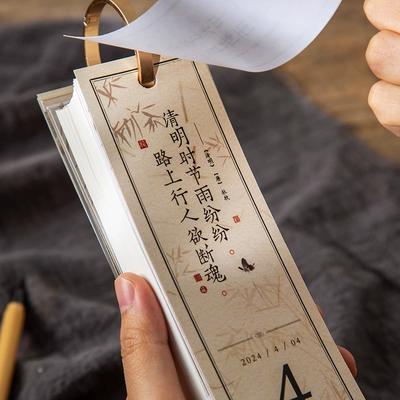 清明时节雨纷纷
路上行人欲断魂
《清明》（唐）杜牧
2024 / 4 / 04
4